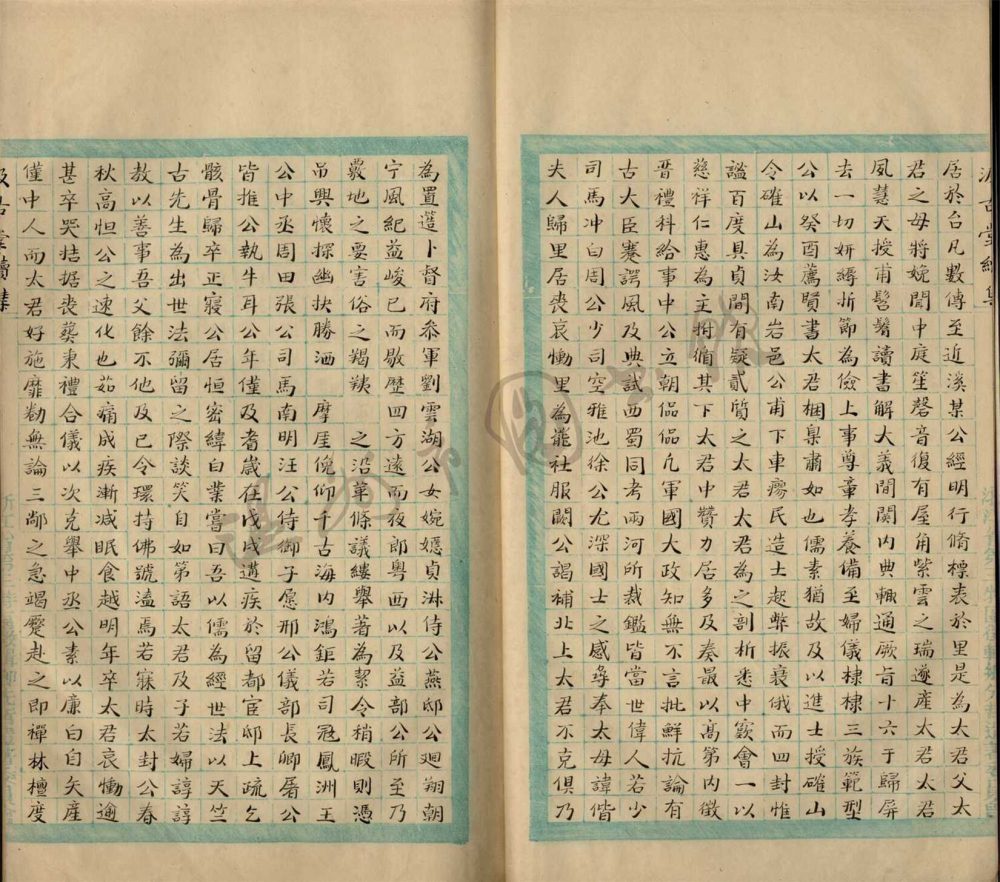 居於台凡數傳至近溪某公經明行脩標表於里是為太君父太
君之母將娩閒中庭笙磬音復有屋角紫雲之瑞遂產太君太君
夙慧天授甫髫鬌讀書解大義間閱內典輒通厥旨十六于歸屏
去一切妍縟折節為儉上事尊章孝養備至婦儀棣棣三族範型
公以癸酉薦賢書太君梱臬肅如也儒素猶故及以進士授確山
令確山為汝南岩邑公甫下車瘍民造士起弊振衰俄而四封惟
謐百度具貞間有疑貳質之太君太君為之剖析悉中窾會一以
慈祥仁惠為主拊循其下太君中贊力居多及奏最以高第內徵
晉禮科給事中公立朝偘偘凡軍國大政知無不言批鮮抗論有
古大臣謇諤風及典試西蜀同考兩河所裁鑑皆當世偉人若少
司馬冲白周公少司空雅池徐公尤深國士之感尋奉太母諱偕
夫人歸里居喪哀慟里為罷社服闋公謁補北上太君不克俱乃
為置簉卜督府叅軍劉雲湖公女婉嫕貞淋侍公燕邸公廻翔朝
宁風紀益峻已而敭歷四方遠而夜郎粤西以及益部公所至乃
覈地之要害俗之羯羠 之沿革條議縷舉著為絜令稍暇則憑
吊興懷探幽抉勝洒 摩厓俛仰千古海內鴻鉅若司冦鳳洲王
公中丞周田張公司馬南明汪公侍御子愿邢公儀部長卿屠公
皆推公執牛耳公年僅及耆歲在戊戌遘疾於留都宦邸上疏乞
骸骨歸卒正寢公居恒密緯白業嘗曰吾以儒為經世法以天竺
古先生為出世法彌留之際談笑自如第語太君及子若婦諄諄
教以善事吾父餘不他及已令環持佛號溘焉若寐時太封公春
秋高怛公之速化也茹痛成疾漸减眠食越明年卒太君哀慟逾
甚卒哭拮据喪葬東禮合儀以次克舉中丞公素以廉白自矢產
僅中人而太君好施靡勌無論三鄗之急竭蹷赴之即禪林檀度